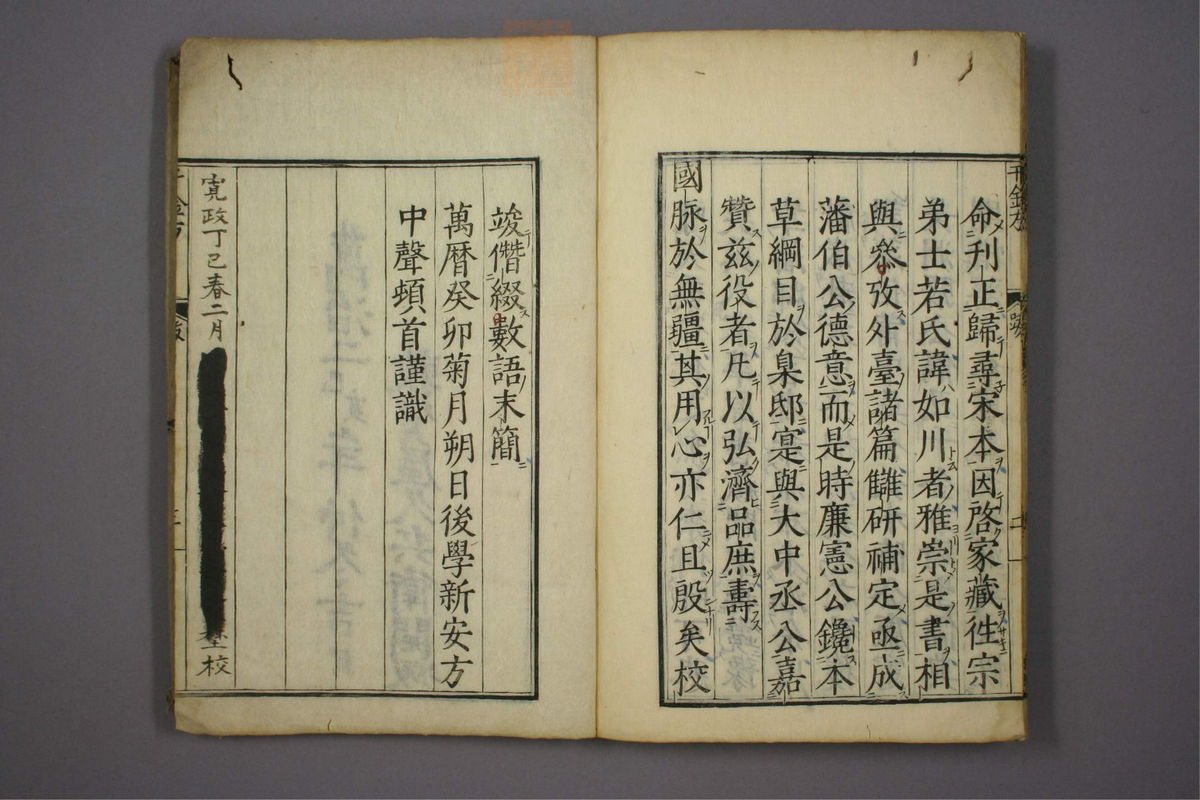 命刋正歸尋宋本因啓家藏徃宗
弟士若氏諱如川者雅崇是書相
與叅攷外臺諸篇雔研補定亟成
藩伯公德意而是時廉憲公鑱本
草綱目於臬邸寔與大中丞公嘉
贊兹役者凡以弘濟品庶壽
國脉於無疆其用心亦仁且殷矣校
竣僭綴數語末簡
萬曆癸卯菊月朔日後學新安方
中聲頓首謹識
寛政丁巳春二月
校